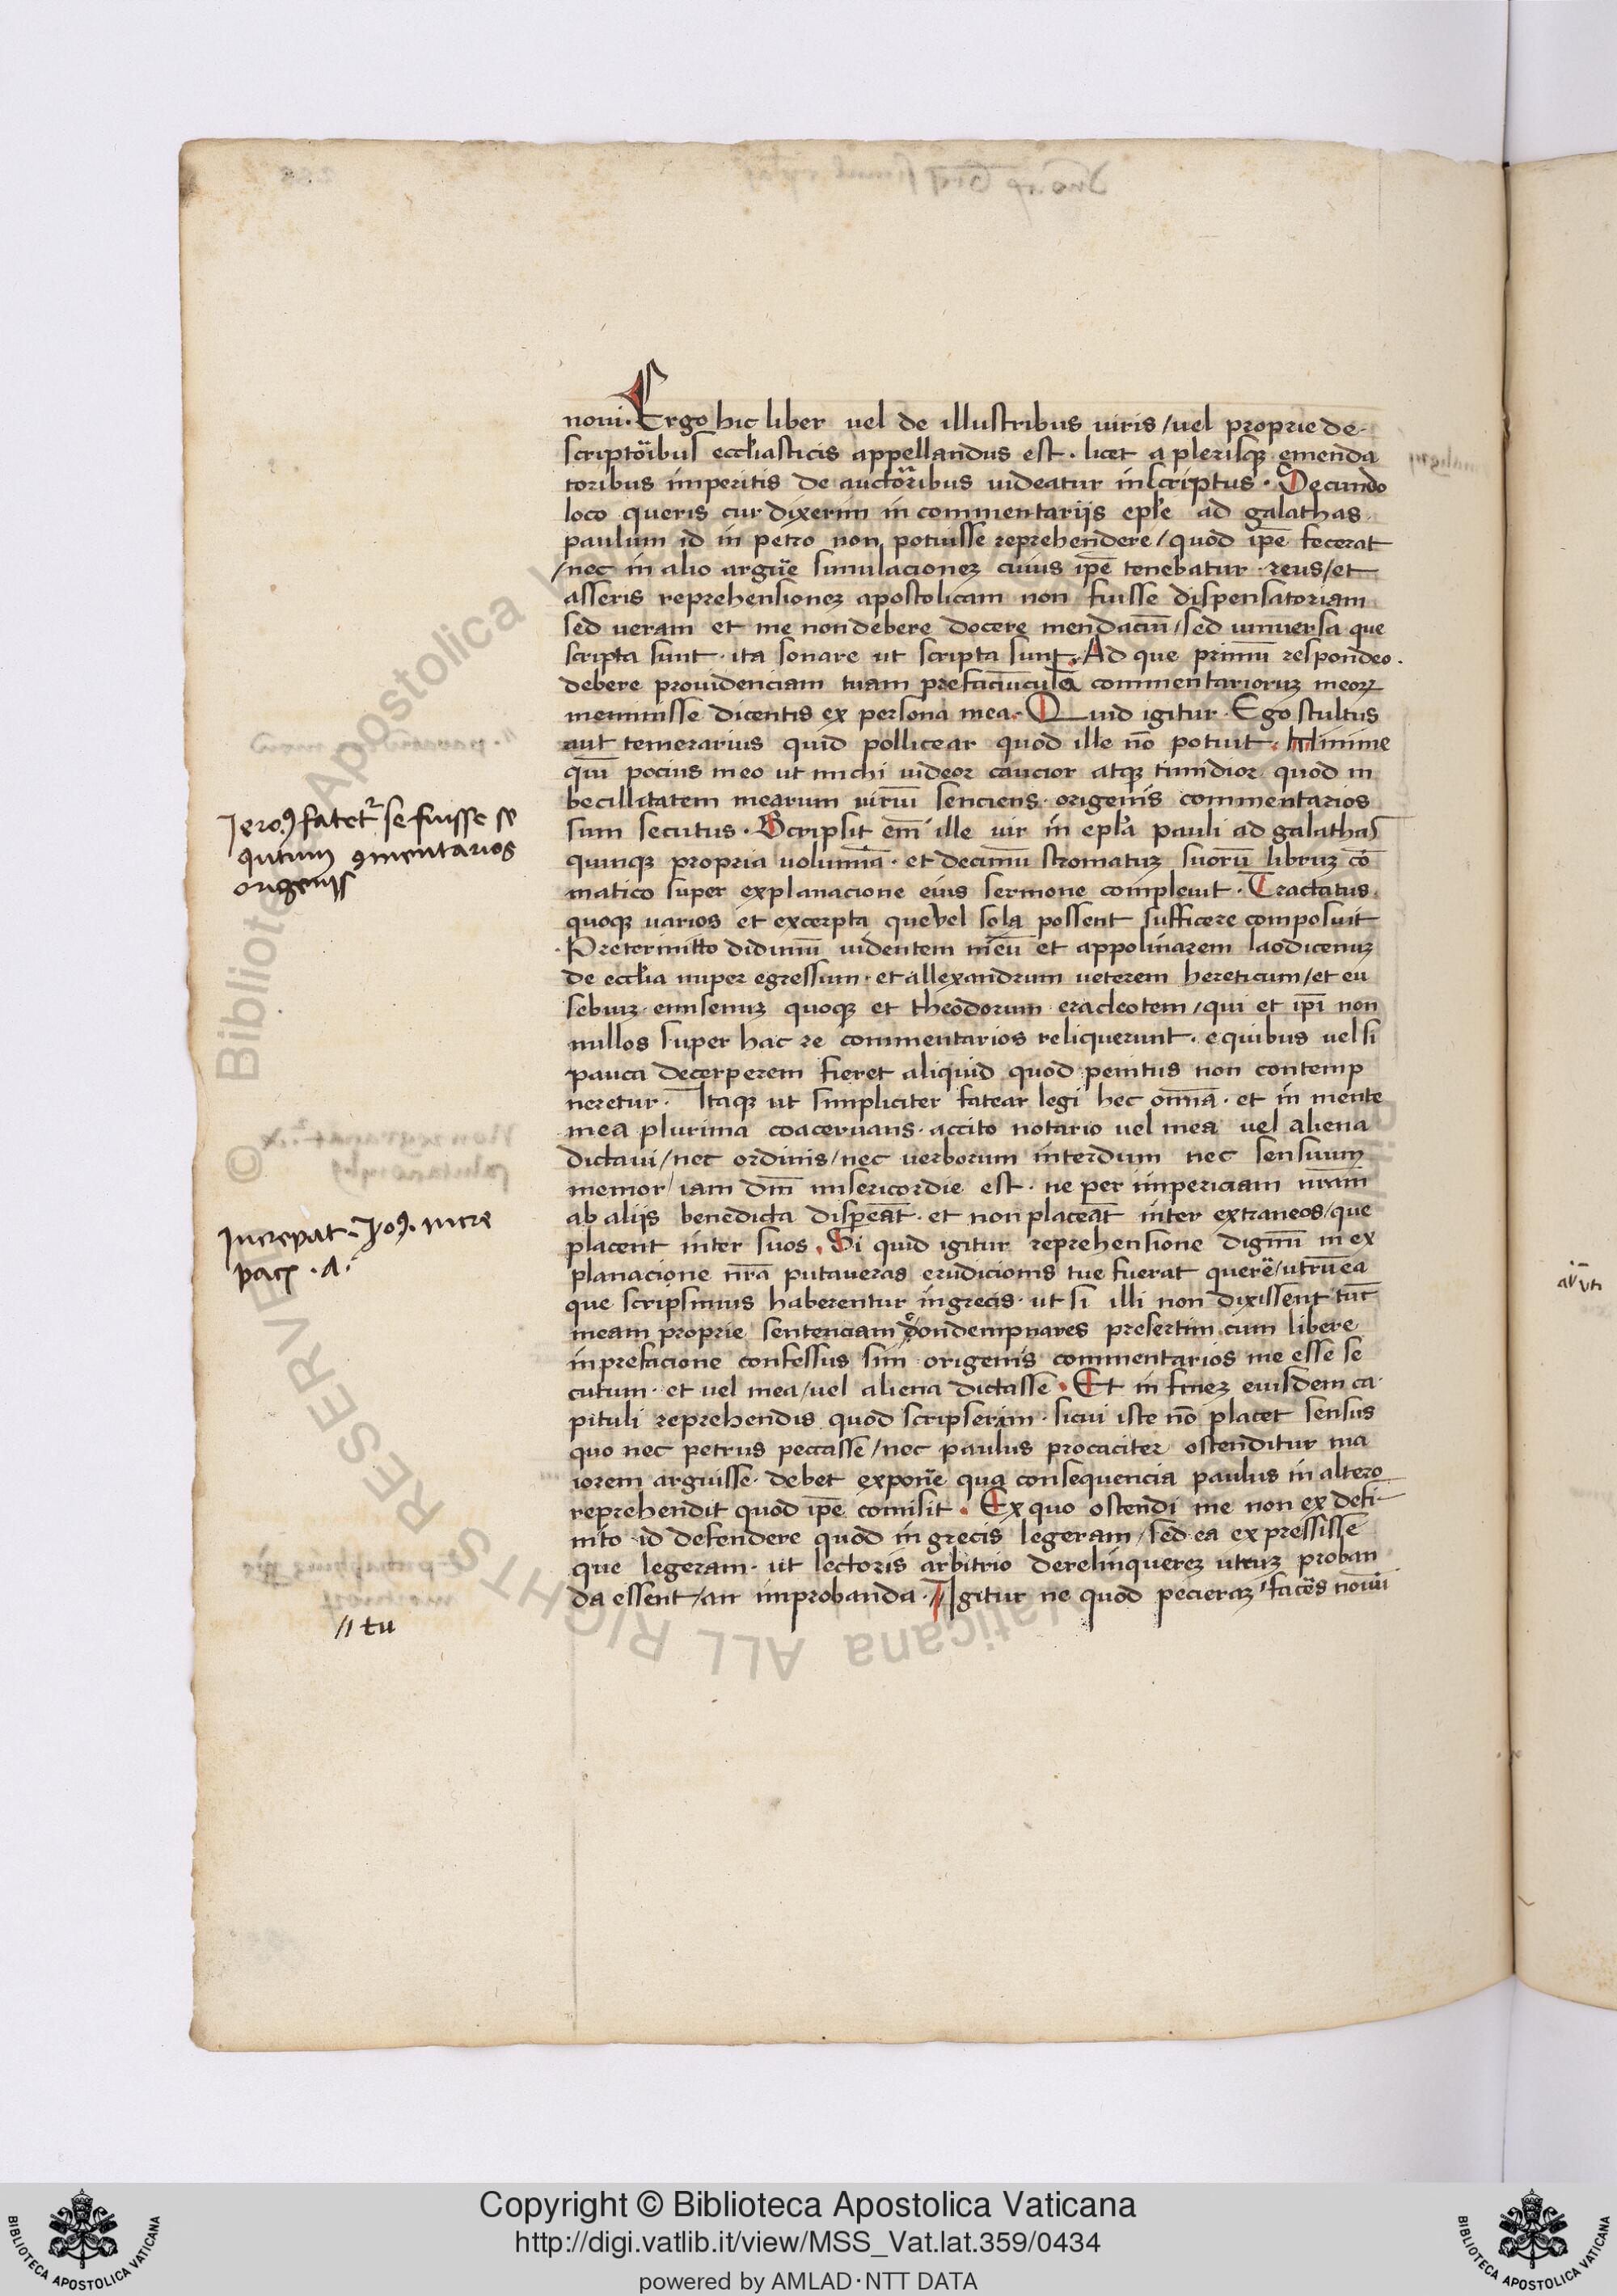 noui. Ergo hic liber uel de illustribus uiris / uel proprie de
scriptoibus eccliasticis appellandus est . licet a plerisq emenda
toribus imperitis de auctoribus uideatur inscriptus . Secundo
loco queris cur dixerim in commentariis eple ad galathas
paulum id in petro non potuisse reprehendere / quod ipe fecerat
/ nec in alio argue simulacionez cuius ipe tenebatur reus / et
asseris reprehensionez apostolicam non fuisse dispensatoriam
sed ueram et me non debere docere mendaciu / sed uniuersa que
scripta sunt . ita sonare ut scripta sunt . Ad que primu respondeo .
debere prouidenciam tuam prefaciuncule commentarioruz meoꝝ
meminisse dicentis ex persona mea . Quid igitur . Ego stultus
aut temerarius quid pollicear quod ille no potuit . Minime
qui pocius in eo ut michi uideor caucior atqz timidior quod in
becillitatem mearum uiriu senciens . origenis commentarios
sum secutus . Scripsit em ille uir in epla pauli ad galathas
quinqz propria uolumina . et decimu stromatuz suoru libruz co
matico super explanacione eius sermone compleuit . Tractatus
quoqz uarios et excerpta que vel sola possent sufficere composuit
. Pretermitto didimu uidentem meu et appolinarem laodicenuz
de ecclia nuper egressum . et allexandrum ueterem hereticum / et eu
sebiuz emisenuz quoqz et theodorum eracleotem / qui et ipi non
nullos super hac re commentarios reliquerunt . e quibus uel si
pauca decerperem fieret aliquid quod penitus non contemp
neretur . Itaqz ut simpliciter fatear legi hec omia . et in mente
mea plurima coaceruans . accito notario uel mea uel aliena
dictaui / nec ordinis / nec uerborum interdum nec sensuum
memor / iam dm misericordie est . ne per imperciam nram
ab aliis benedicta dispereat . et non placeat inter extraneos / que
placent inter suos . Si quid igitur reprehensione dignu in ex
planacione nra putaueras erudicionis tue fuerat quere / utru ea
que scripsimus haberentur in grecis . ut si illi non dixissent tuc
meam proprie sentenciam condempnares presertim cum libere
in prefacione confessus sim origenis commentarios me esse se
cutum . et uel mea / uel aliena dictasse . Et in finez eiusdem ca
pituli reprehendis quod scripserim . si cui iste no placet sensus
quo nec petrus peccasse / nec paulus procaciter ostenditur ma
iorem arguisse . debet expone qua consequencia paulus in altero
reprehendit quod ipe comisit . Ex quo ostendi me non ex defi-
nito id defendere quod in grecis legeram / sed ea expressisse
que legeram . ut lectoris arbitrio derelinquerez utruz proban
da essent / an improbanda . Igitur ne quod pecieraz faces nouu
Jero9 fatet se fuisse se
qutum 9mentarios
origenis
Increpat Jo9. incre
// tu
Copyright © Biblioteca Apostolica Vaticana
http://digi.vatlib.it/view/MSS_Vat.lat.359/0434
powered by AMLAD·NTT DATA
BIBLIOTECA APOSTOLICA VATICANA
BIBLIOTECA APOSTOLICA VATICANA
© Biblioteca Apostolica Vaticana ALL RIGHTS RESERVED